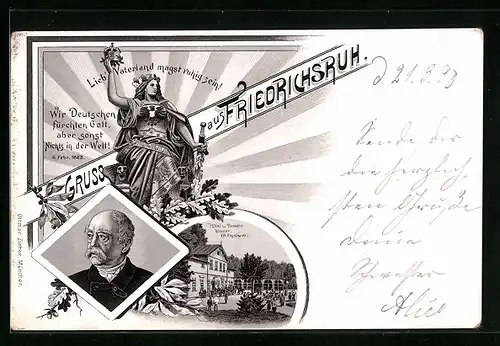 Lieb Vaterland magst ruhig sein!
Wir Deutschen
fürchten Gott,
aber sonst
Nichts in der Welt!
6. Febr. 1888.
GRUSS aus FRIEDRICHSRUH.
Ottmar Zieher, München.
Sende Dir
die herzlich-
sten Grüße
Deine
Schwester
Alice